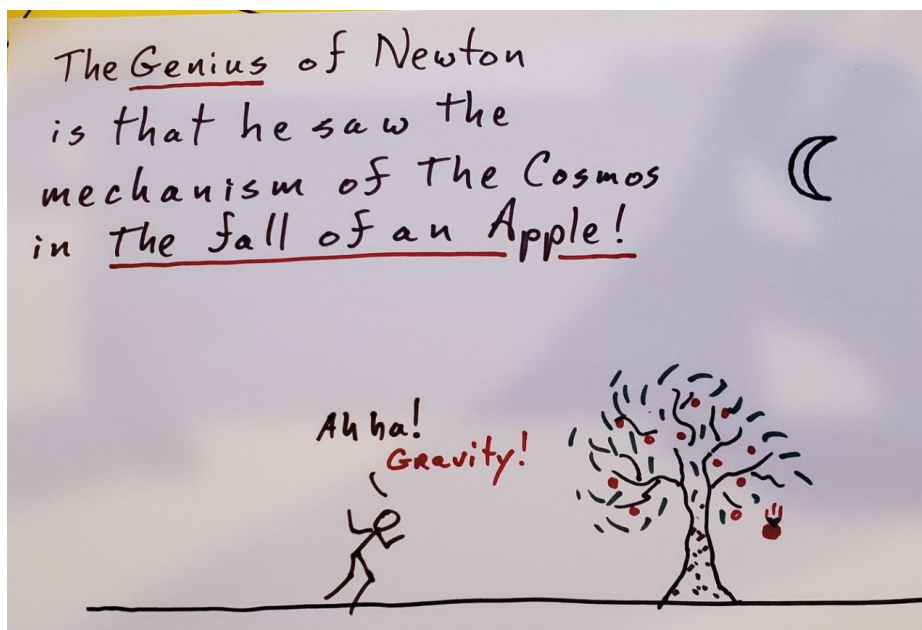 The Genius of Newton
is that he saw the
mechanism of The Cosmos
in The fall of an Apple!
Ah ha!
Gravity!